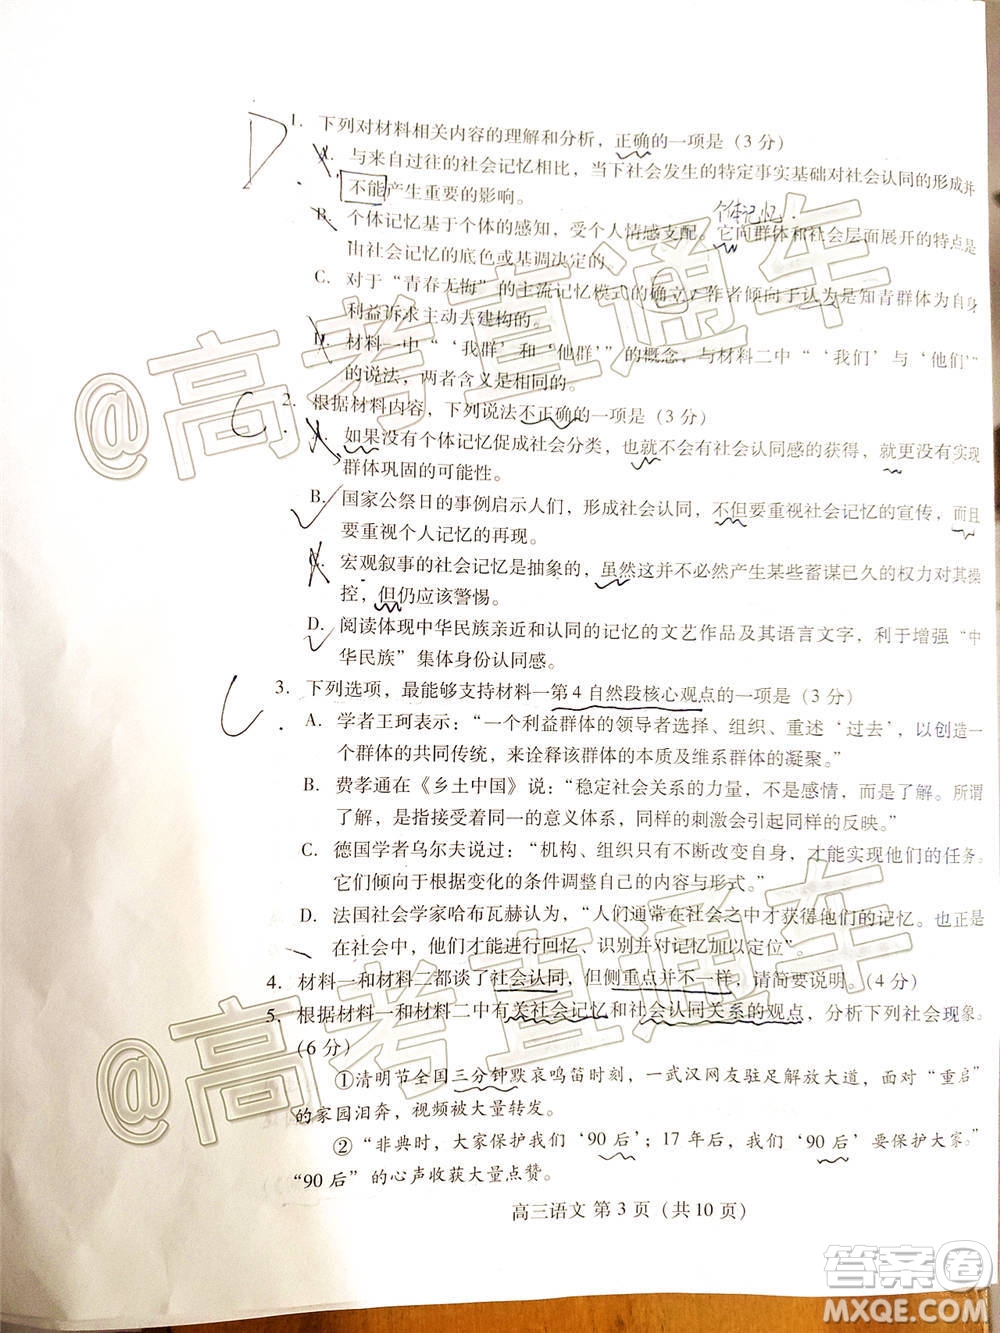 D
1. 下列对材料相关内容的理解和分析，正确的一项是（3 分）
A. 与来自过往的社会记忆相比，当下社会发生的特定事实基础对社会认同的形成并
不能产生重要的影响。
个体记忆
B. 个体记忆基于个体的感知，受个人情感支配。它向群体和社会层面展开的特点是
由社会记忆的底色或基调决定的。
C. 对于“青春无悔”的主流记忆模式的确立，作者倾向于认为是知青群体为自身
利益诉求主动去建构的。
D. 材料一中“‘我群’和‘他群’”的概念，与材料二中“‘我们’与‘他们’”
的说法，两者含义是相同的。
C
2. 根据材料内容，下列说法不正确的一项是（3 分）
A. 如果没有个体记忆促成社会分类，也就不会有社会认同感的获得，就更没有实现
群体巩固的可能性。
B. 国家公祭日的事例启示人们，形成社会认同，不但要重视社会记忆的宣传，而且
要重视个人记忆的再现。
宏观叙事的社会记忆是抽象的，虽然这并不必然产生某些蓄谋已久的权力对其操
控，但仍应该警惕。
D. 阅读体现中华民族亲近和认同的记忆的文艺作品及其语言文字，利于增强“中
华民族”集体身份认同感。
3. 下列选项，最能够支持材料一第 4 自然段核心观点的一项是（3 分）
A. 学者王珂表示：“一个利益群体的领导者选择、组织、重述‘过去’，以创造一
个群体的共同传统，来诠释该群体的本质及维系群体的凝聚。”
B. 费孝通在《乡土中国》说：“稳定社会关系的力量，不是感情，而是了解。所谓
了解，是指接受着同一的意义体系，同样的刺激会引起同样的反映。”
C. 德国学者乌尔夫说过：“机构、组织只有不断改变自身，才能实现他们的任务。
它们倾向于根据变化的条件调整自己的内容与形式。”
D. 法国社会学家哈布瓦赫认为，“人们通常在社会之中才获得他们的记忆。也正是
在社会中，他们才能进行回忆、识别并对记忆加以定位”。
4. 材料一和材料二都谈了社会认同，但侧重点并不一样，请简要说明。（4 分）
5. 根据材料一和材料二中有关社会记忆和社会认同关系的观点，分析下列社会现象。
（6 分）
①清明节全国三分钟默哀鸣笛时刻，一武汉网友驻足解放大道，面对“重启”
的家园泪奔，视频被大量转发。
②“非典时，大家保护我们‘90 后’；17 年后，我们‘90 后’要保护大家。”
“90 后”的心声收获大量点赞。
高三语文 第 3 页（共 10 页）
@高考直通车
@高考直通车
答案卷
MXQE.COM